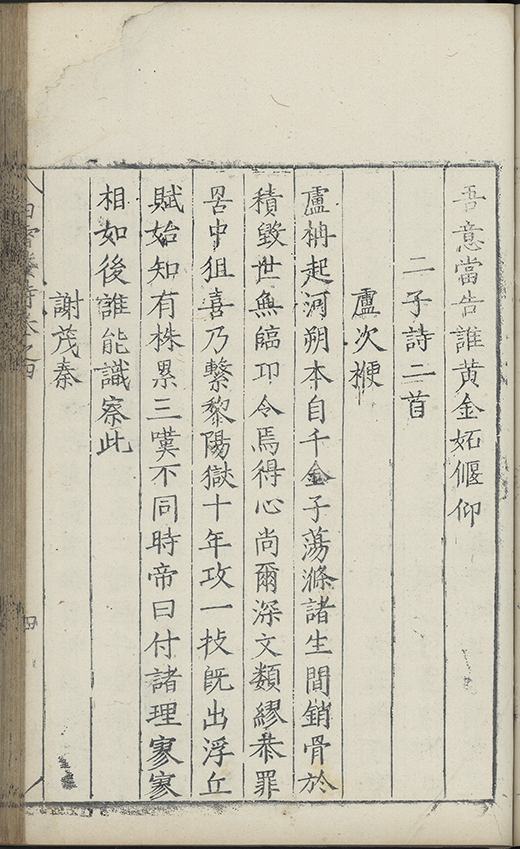 吾意當告誰黃金妬偃仰
二子詩二首
盧次楩
盧柟起河朔本自千金子蕩滌諸生間銷骨於
積毀世無臨卭令焉得心尚爾深文類繆恭罪
罟中狙喜乃繫黎陽獄十年攻一技旣出浮丘
賦始知有株累三嘆不同時帝曰付諸理寥寥
相如後誰能識察此
謝茂秦
白雪樓詩卷之四
四